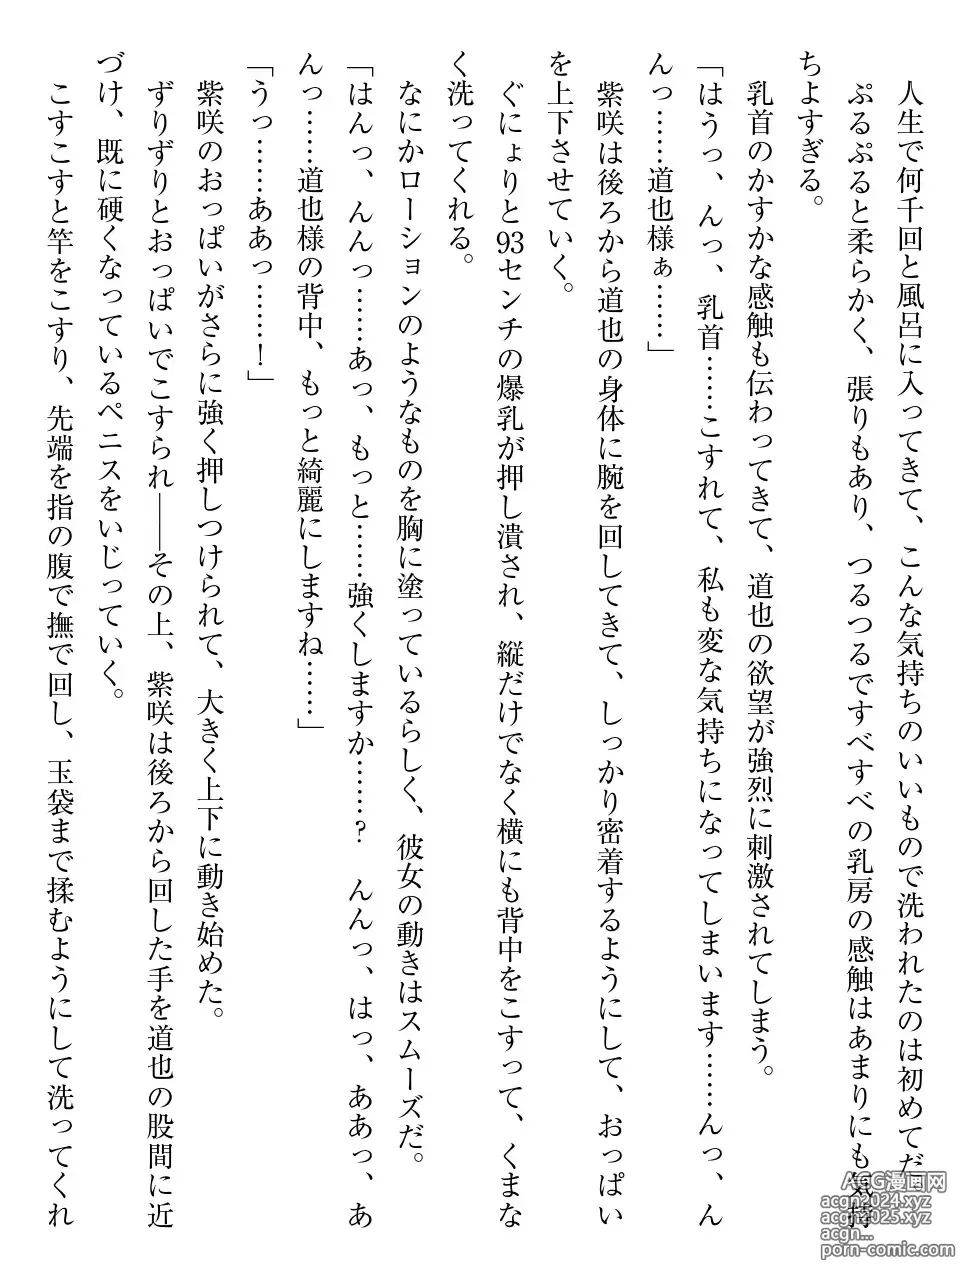 人生で何千回と風呂に入ってきて、こんな気持ちのいいもので洗われたのは初めてだ。
ぷるぷると柔らかく、張りもあり、つるつるですべすべの乳房の感触はあまりにも気持
ちよすぎる。
乳首のかすかな感触も伝わってきて、道也の欲望が強烈に刺激されてしまう。
「はうっ、んっ、乳首……こすれて、私も変な気持ちになってしまいます……んっ、ん
んっ……道也様ぁ……」
紫咲は後ろから道也の身体に腕を回してきて、しっかり密着するようにして、おっぱい
を上下させていく。
ぐにょりと93センチの爆乳が押し潰され、縦だけでなく横にも背中をこすって、くまな
く洗ってくれる。
なにかローションのようなものを胸に塗っているらしく、彼女の動きはスムーズだ。
「はんっ、んんっ……あっ、もっと……強くしますか……？　んんっ、はっ、ああっ、あ
んっ……道也様の背中、もっと綺麗にしますね……」
「うっ……ああっ……！」
紫咲のおっぱいがさらに強く押しつけられて、大きく上下に動き始めた。
ずりずりとおっぱいでこすられ――その上、紫咲は後ろから回した手を道也の股間に近
づけ、既に硬くなっているペニスをいじっていく。
こすこすと竿をこすり、先端を指の腹で撫で回し、玉袋まで揉むようにして洗ってくれ
ACG漫画网
acgn2024.xyz
acgn2025.xyz
acgn...
porn-comic.com